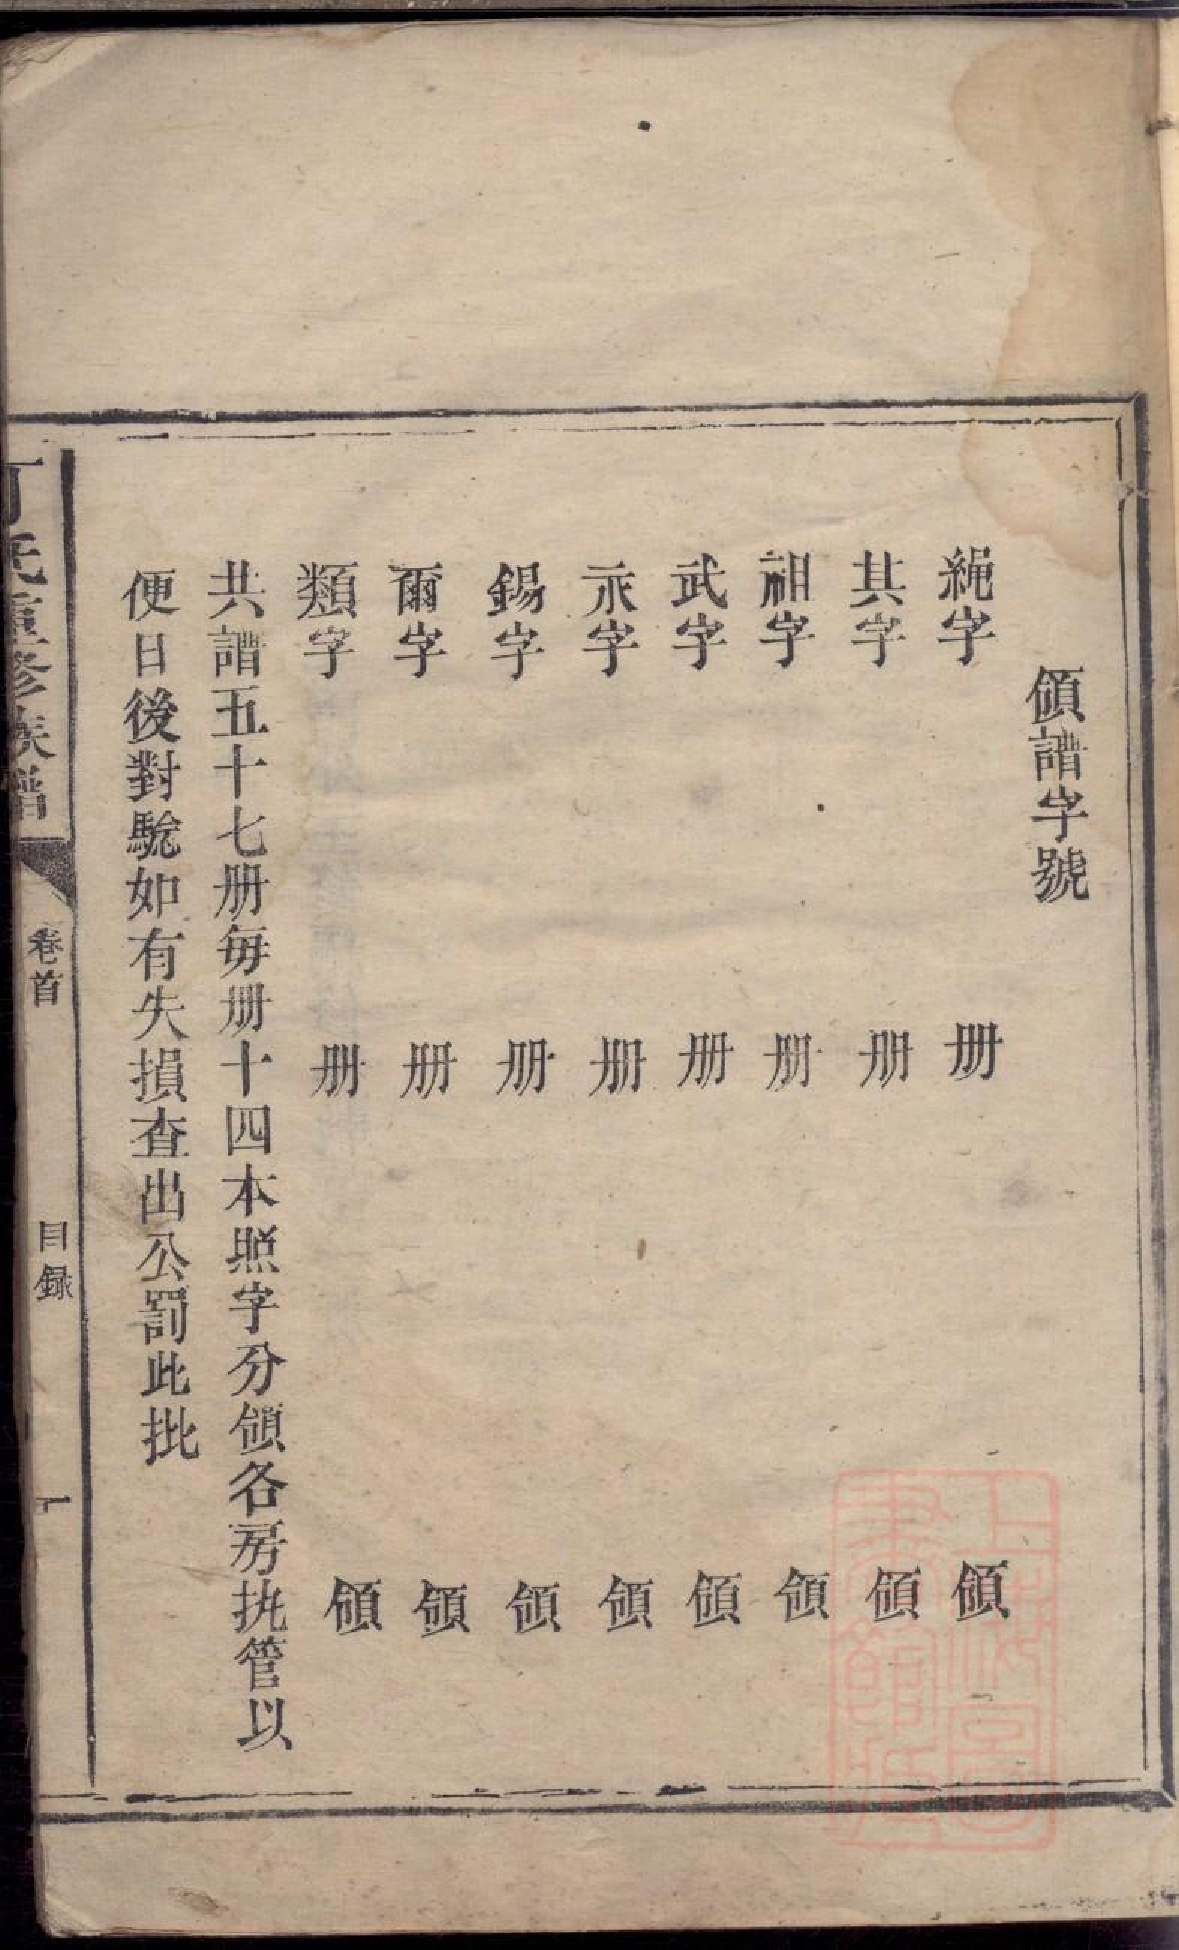 領譜字號
繩字 册 領
其字 册 領
祖字 册 領
武字 册 領
永字 册 領
錫字 册 領
爾字 册 領
類字 册 領
共譜五十七册每册十四本照字分領各房执管以
便日後對驗如有失損查出公罰此批
丁氏重修族譜 卷首 目録 一